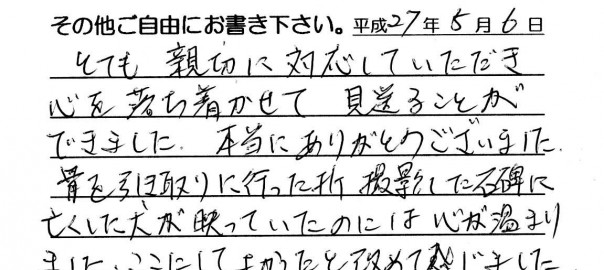 その他ご自由にお書き下さい。平成27年5月6日
とても 親切に対応していただき
心を落ち着かせて 見送ることが
できました. 本当にありがとうございました.
骨を引き取りに行った折 撮影した石碑に
亡くした犬が映っていたのには心が温まり
ました. ここにしてよかったと改めて感じました